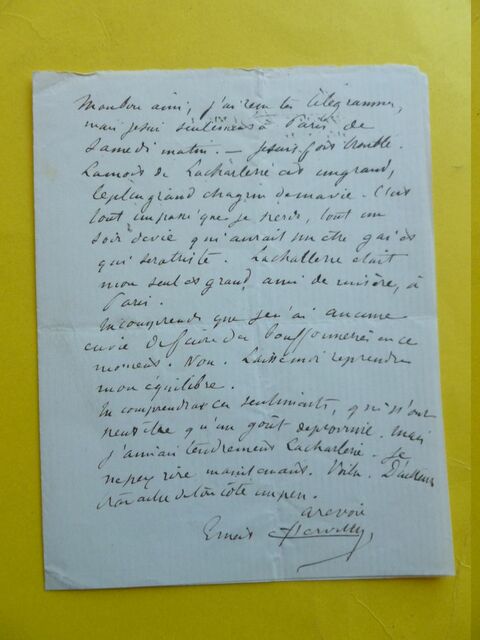 Mon bon ami, j'ai reçu tes télégrammes,
mais je suis seulement à Paris de
samedi matin. — je suis fort troublé.
La mort de Lacharlerie est un grand,
le plus grand chagrin de ma vie. C'est
tout un passé que je perds, tout un
soir de vie qui aurait pu être gai et
qui sera triste. Lacharlerie était
mon seul et grand ami de misère, à
Paris.
Tu comprends que je n'ai aucune
envie de faire des bouffonneries en ce
moment. Non. Laisse moi reprendre
mon équilibre.
Tu comprendras ces sentiments, qui n'ont
peut être qu'un goût de province. Mais
j'aimais tendrement Lacharlerie. Je
ne peux rire maintenant. Voilà. D'ailleurs
travaille de ton côté un peu.
a revoir
Ernest d'Hervilly